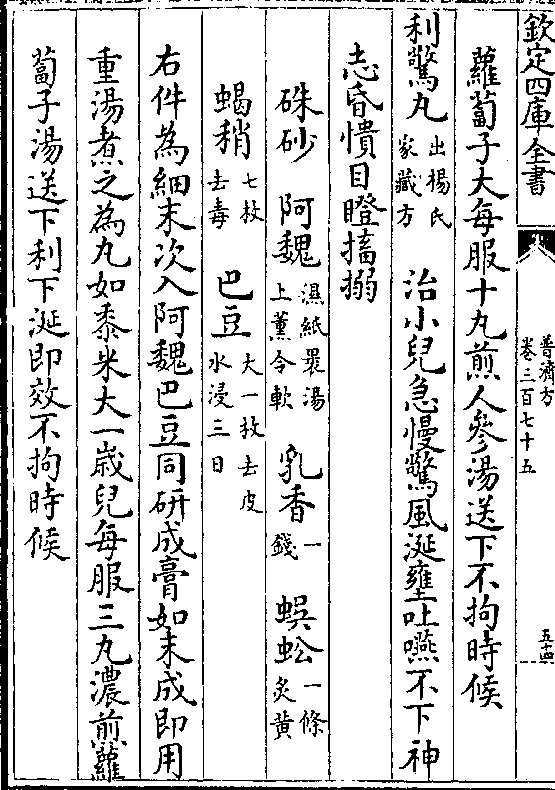 欽定四庫全書
普濟方
卷三百七十五
五十四
蘿蔔子大每服十丸煎人參湯送下不拘時候
利驚丸出楊氏家藏方　治小兒急慢驚風涎壅吐嚥不下神
志昏憒目瞪搐搦
硃砂　阿魏濕紙褁湯上薰令軟　乳香一錢　蜈蚣一條炙黄
蝎稍七枚去毒　巴豆大一枚去皮水浸三日
右件為細末次入阿魏巴豆同研成膏如未成即用
重湯煮之為丸如黍米大一嵗兒每服三丸濃煎蘿
蔔子湯送下利下涎即效不拘時候